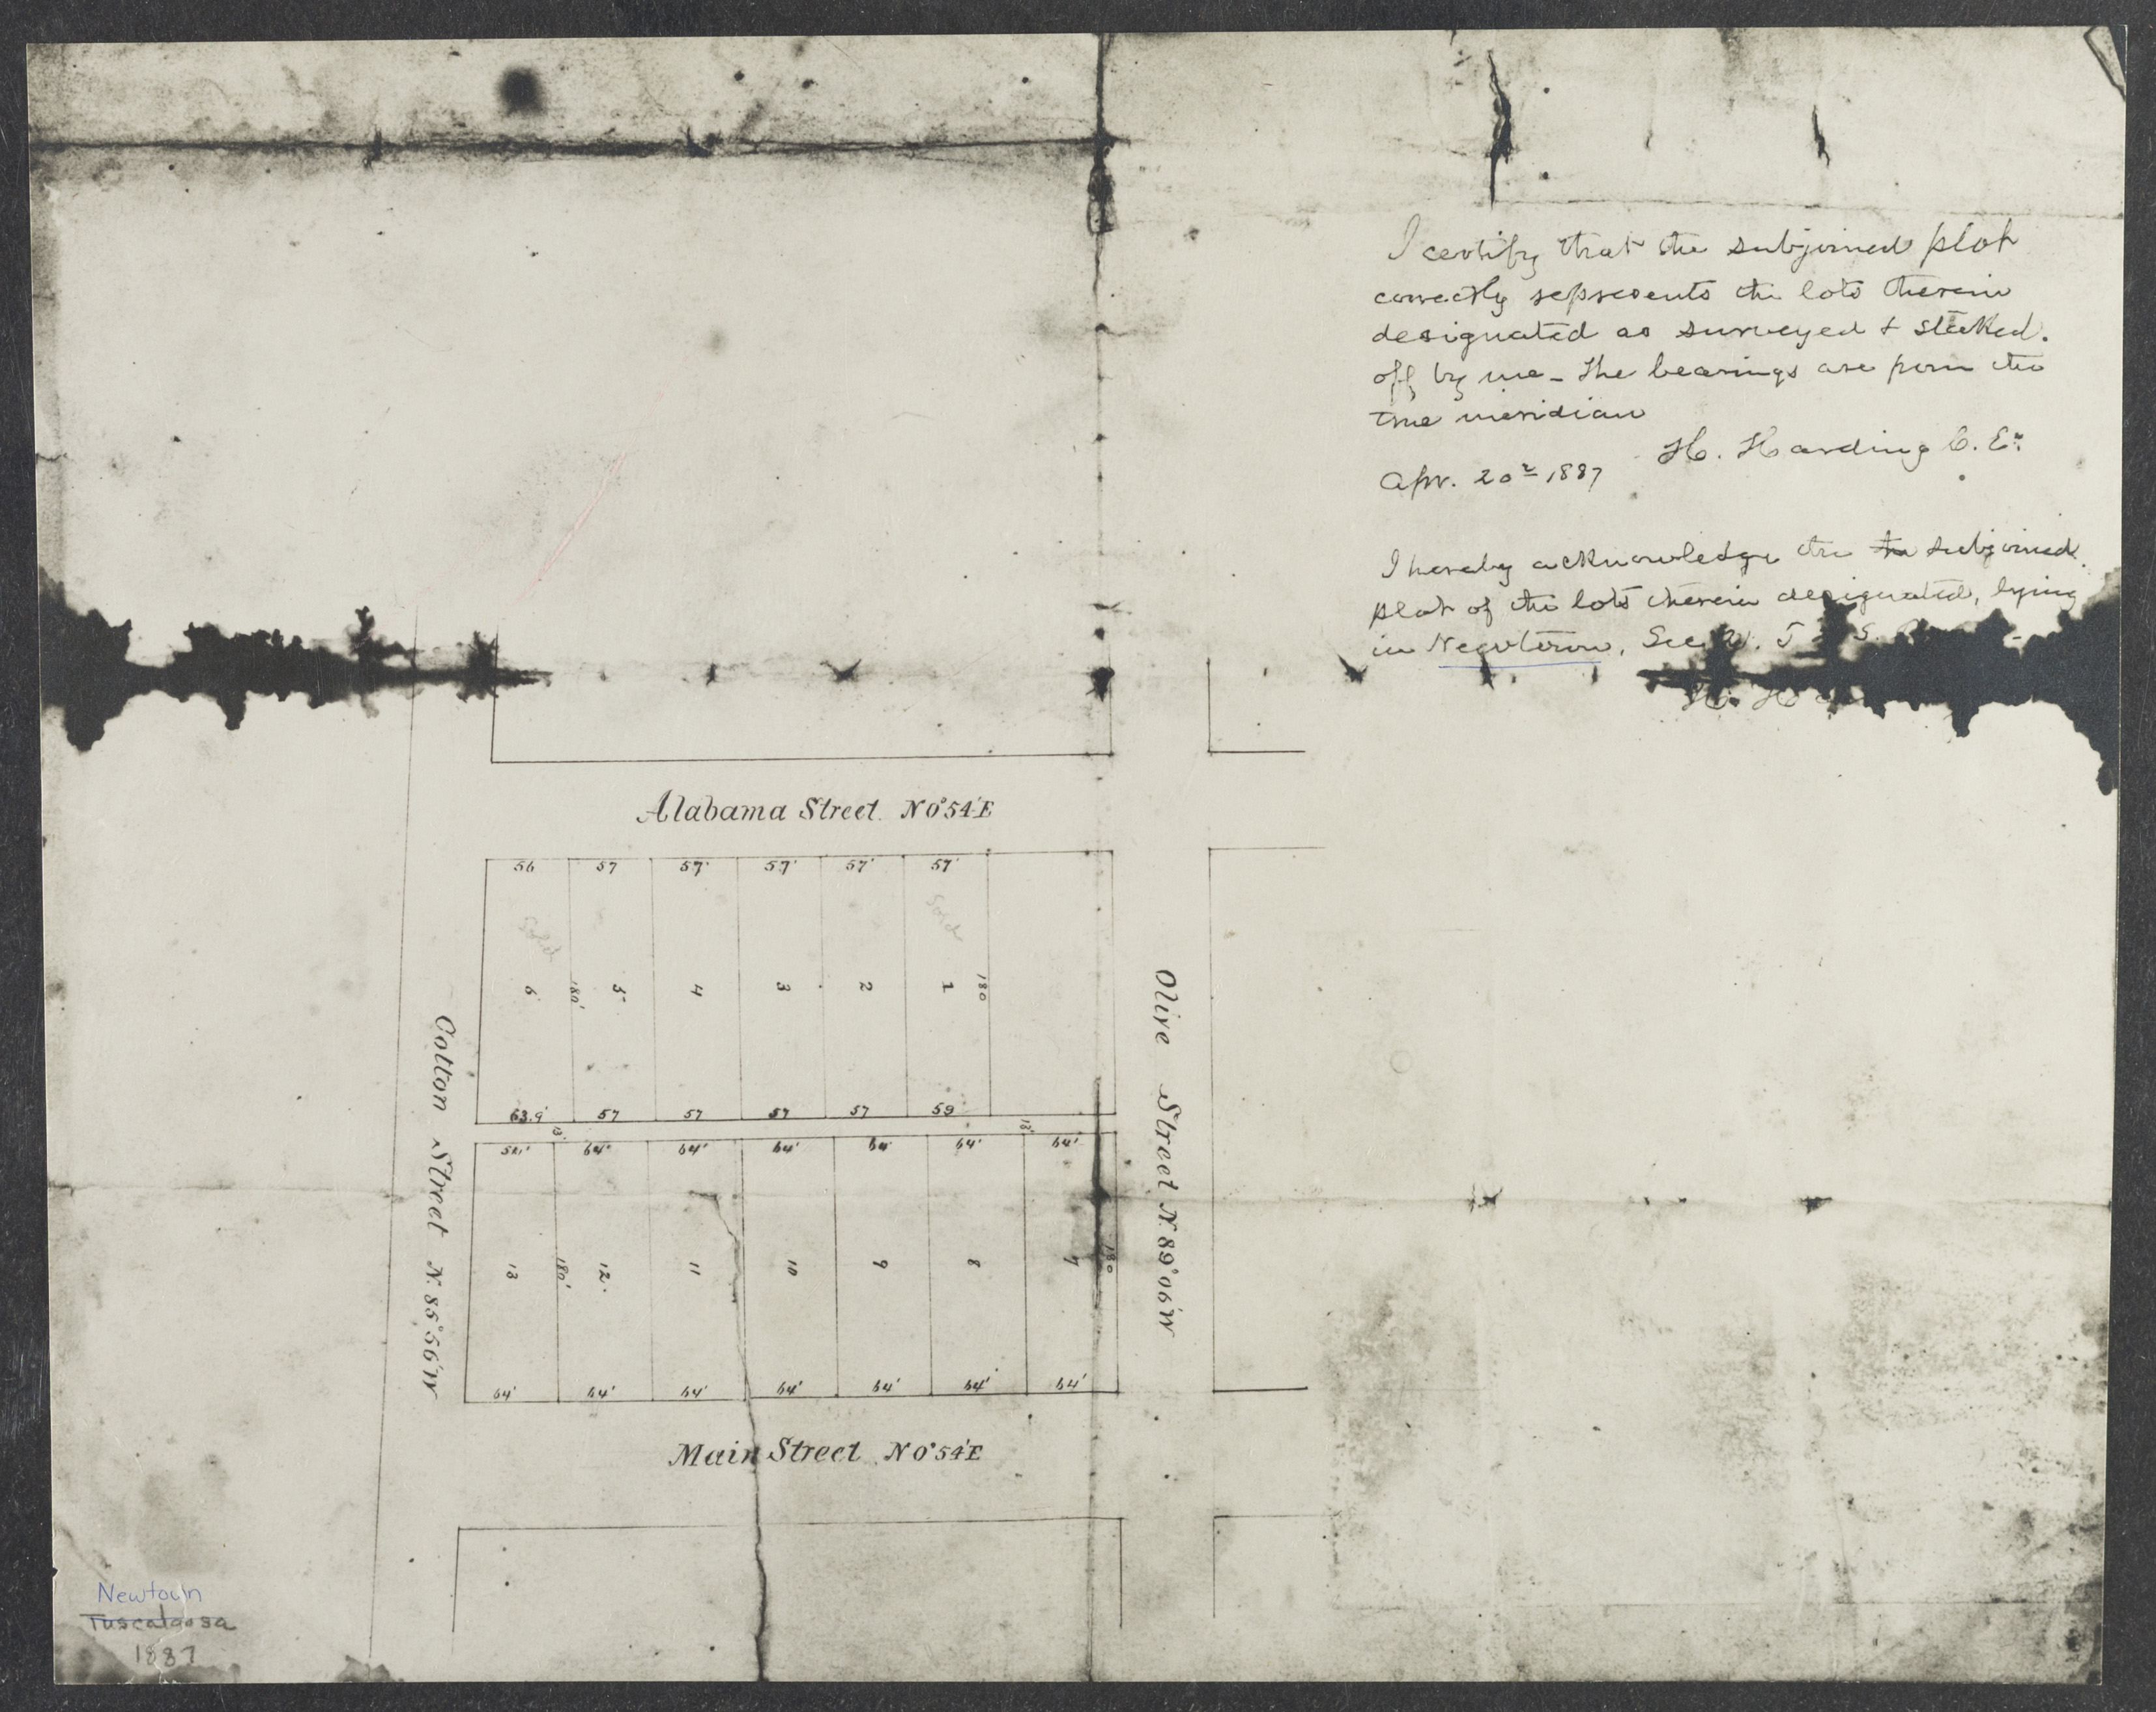 I certify that the subjoined plot
correctly represents the lots therein
designated as surveyed & staked.
off by me - The bearings are from the
true meridian
H. Harding C. Er
Apr. 20th 1887
I hereby acknowledge the the subjoined
plat of the lots therein designated, lying
in Newtown, Sec
H. H
Alabama Street N 0°54'E
56 57 57' 57' 57' 57'
Sold Sold
6 180' 5 4 3 2 1 180
63.9' 57 57 57 57 59
64' 64' 64' 64' 64' 64'
13 180' 12 11 10 9 8 7 180
64' 64' 64' 64' 64' 64' 64'
Cotton Street N. 85°56'W
Olive Street N. 89°06'W
Main Street N 0°54'E
Newtown
Tuscaloosa
1887